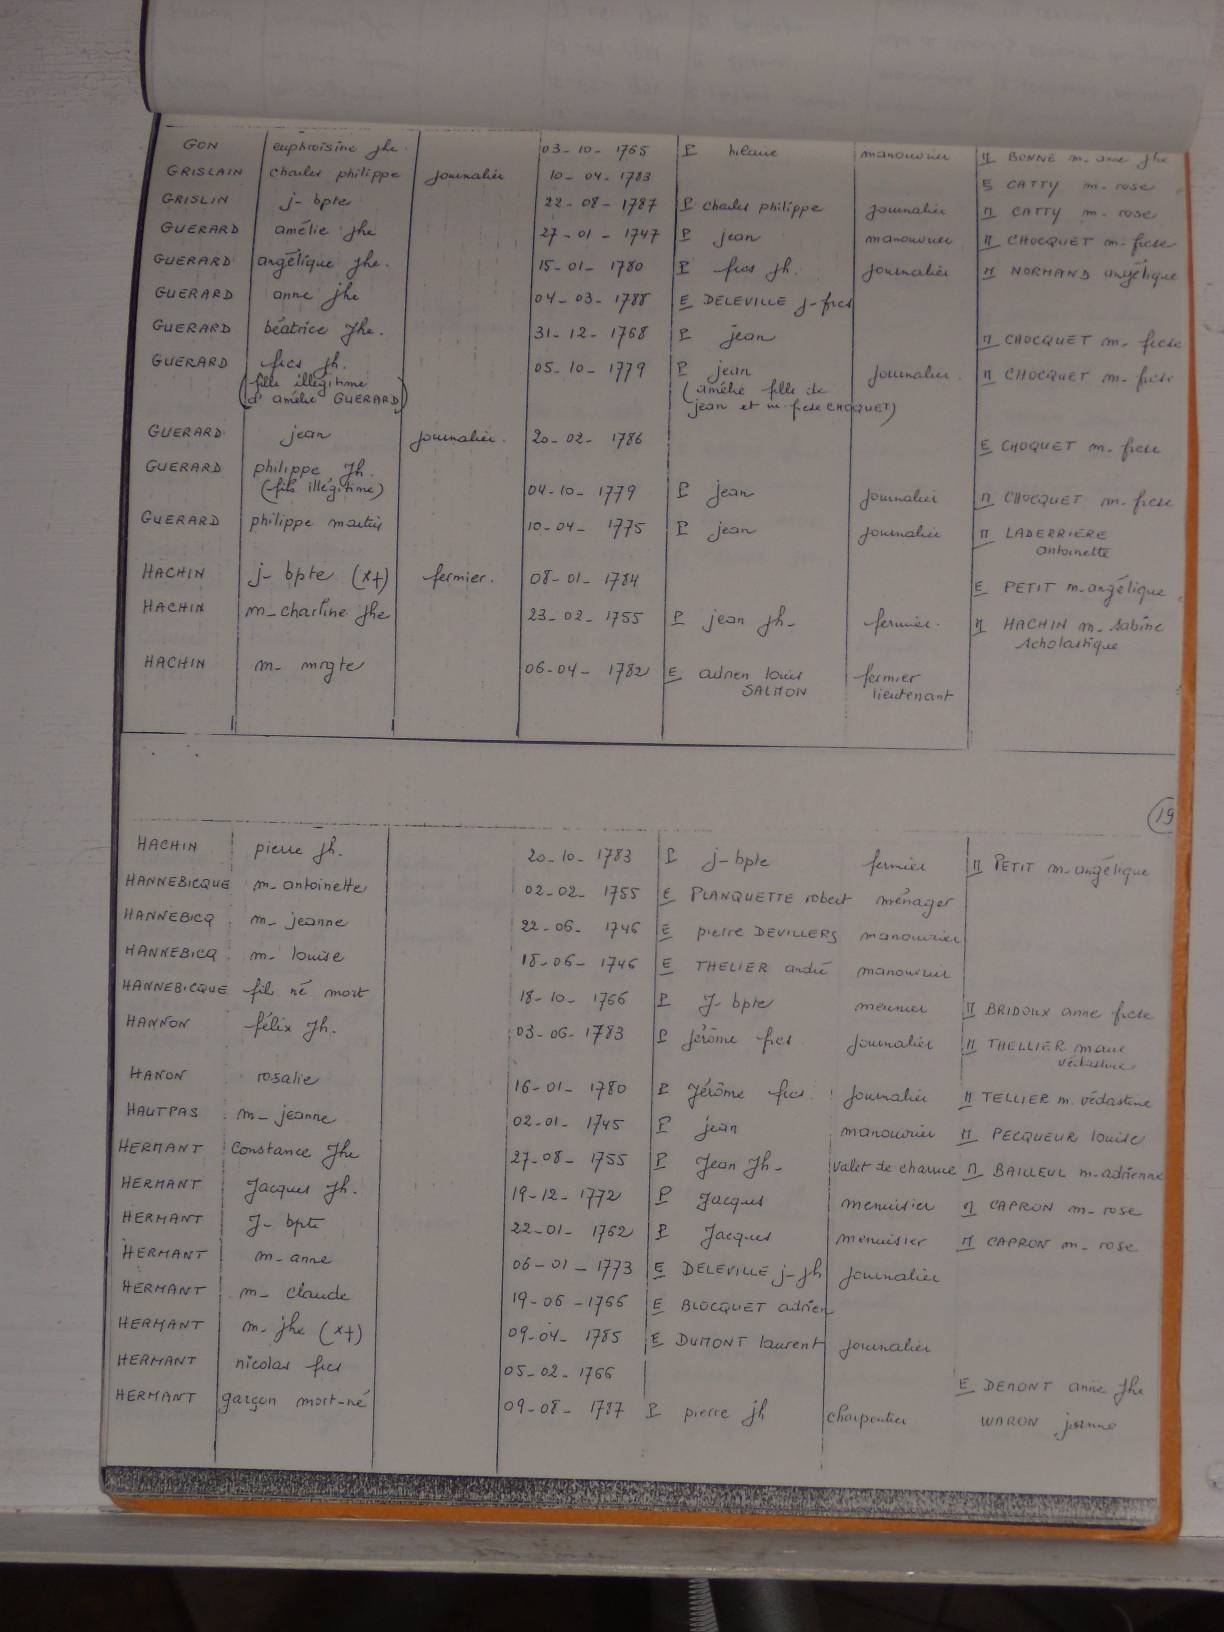 GON euphroisine jhe. 03-10-1765 P hilaire manouvrier M BONNE m-anne jhe
GRISLAIN charles philippe journalier 10-04-1783 E CATTY m-rose
GRISLIN j-bpte 22-08-1787 P charles philippe journalier M CATTY m-rose
GUERARD amélie jhe 27-01-1747 P jean manouvrier M CHOCQUET m-fcse
GUERARD angélique jhe. 15-01-1780 P fcos jh. journalier M NORMAND angélique
GUERARD anne jhe 04-03-1788 E DELEVILLE j-fcs
GUERARD béatrice jhe. 31-12-1768 P jean M CHOCQUET m-fcse
GUERARD fcs jh. 05-10-1779 P jean journalier. M CHOCQUET m-fcse
(fils illégitime (amélie fille de
d'amélie GUERARD) jean et m-fcse CHOCQUET)
GUERARD jean journalier. 20-02-1786 E CHOQUET m-fcse
GUERARD philippe jh.
(fils illégitime) 04-10-1779 P jean journalier M CHOCQUET m-fcse
GUERARD philippe martin 10-04-1775 P jean journalier M LADERRIERE
antoinette
HACHIN j-bpte (x+) fermier. 08-01-1784 E PETIT m-angélique
HACHIN m-charline jhe 23-02-1755 P jean jh- fermier. M HACHIN m-sabine
scholastique
HACHIN m-mrgte 06-04-1782 E adrien louis fermier
SALMON lieutenant
19
HACHIN pierre jh. 20-10-1783 P j-bpte fermier M PETIT m-angélique
HANNEBICQUE m-antoinette 02-02-1755 E PLANQUETTE robert ménager
HANNEBICQ m-jeanne 22-06-1746 E pierre DEVILLERS manouvrier
HANNEBICQ m-louise 18-06-1746 E THELIER andré manouvrier
HANNEBICQUE fils né mort 18-10-1766 P J-bpte meunier M BRIDOUX anne fcse
HANNON félix Jh. 03-06-1783 P jérôme fcs journalier M THELLIER marie
védastine
HANON rosalie 16-01-1780 P Jérôme fcs. journalier M TELLIER m.védastine
HAUTPAS m-jeanne 02-01-1745 P jean manouvrier M PECQUEUR louise
HERMANT constance Jhe 27-08-1755 P Jean Jh- valet de charrue M BAILLEUL m.adrienne
HERMANT Jacques Jh. 19-12-1772 P Jacques menuisier M CAPRON m-rose
HERMANT J-bpte 22-01-1762 P Jacques menuisier M CAPRON m-rose
HERMANT m-anne 06-01-1773 E DELEVILLE j-jh journalier
HERMANT m-claude 19-06-1766 E BLOCQUET adrien
HERMANT m-jhe (x+) 09-04-1785 E DUMONT laurent journalier
HERMANT nicolas fcs 05-02-1766 E DEMONT anne Jhe
HERMANT garçon mort-né 09-08-1787 P pierre jh charpentier WARON jeanne